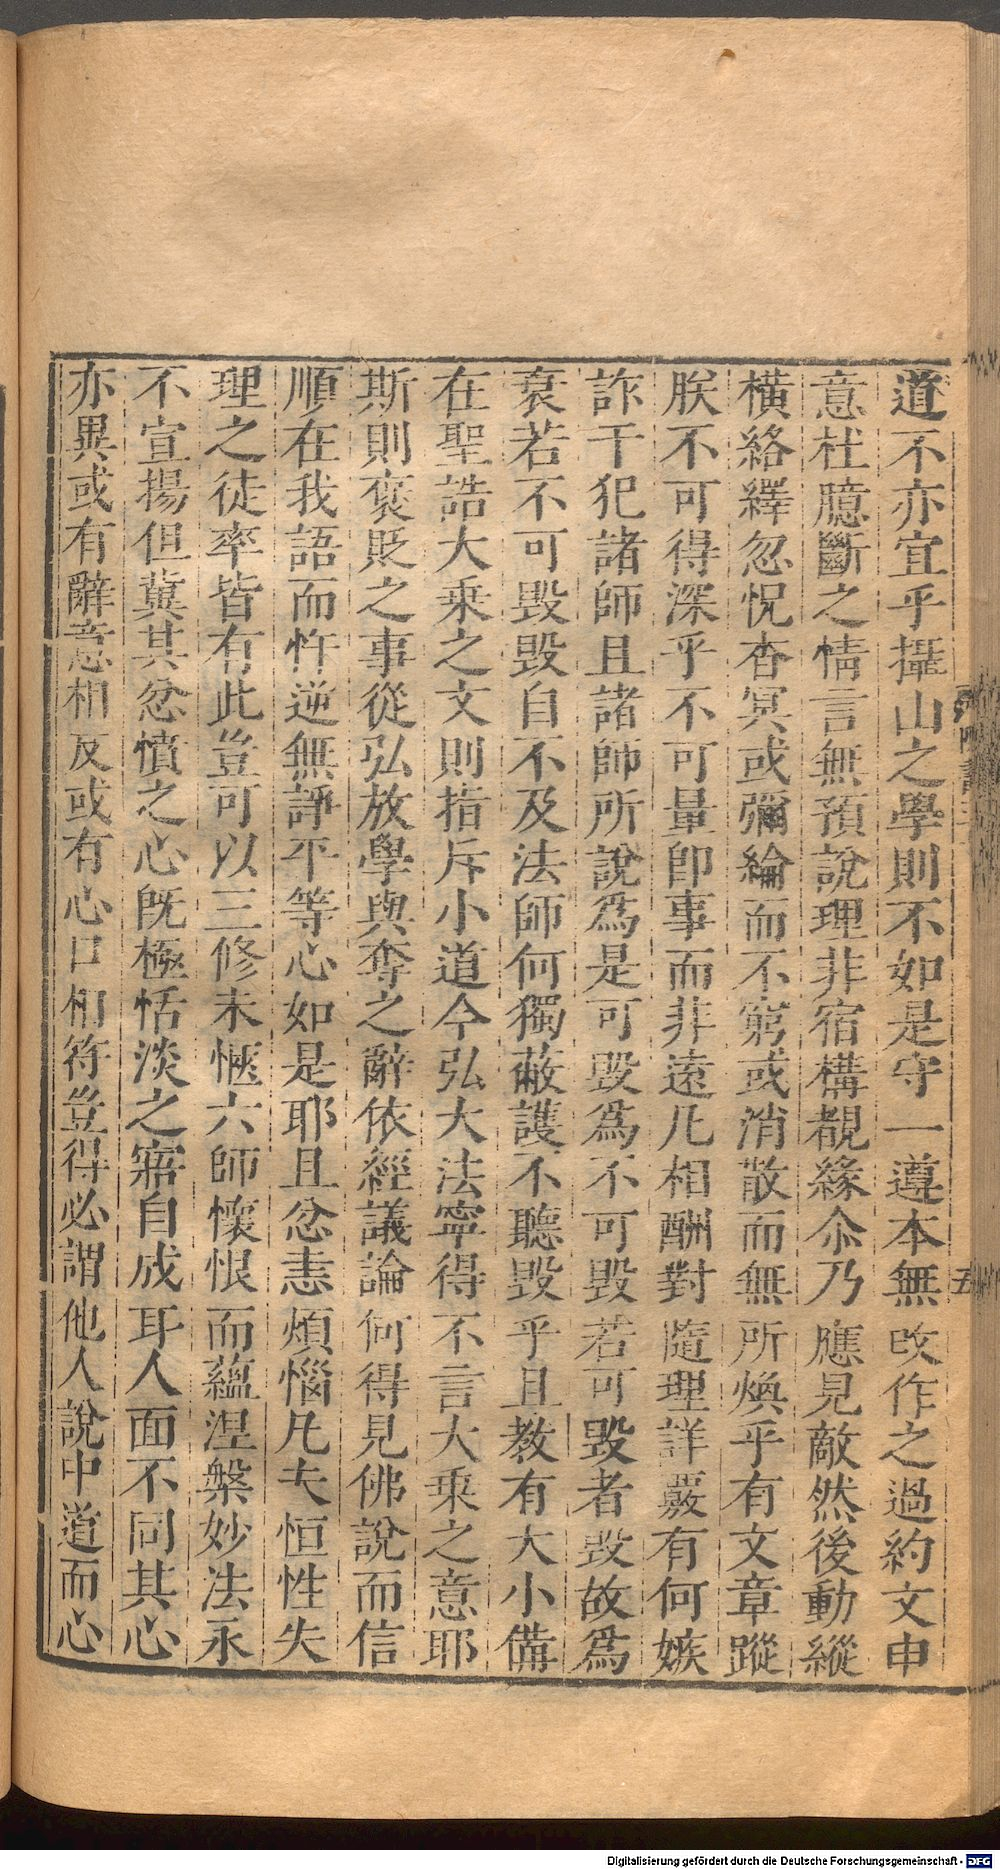 道不亦宜乎攝山之學則不如是守一遵本無改作之過約文申
意杜臆斷之情言無預說理非宿構覩緣尒乃應見敵然後動縱
橫絡繹忽怳杳冥或彌綸而不窮或消散而無所煥乎有文章蹤
朕不可得深乎不可量卽事而非遠凡相酬對隨理詳覈有何嫉
詐干犯諸師且諸師所說爲是可毀爲不可毀若可毀者毀故爲
衰若不可毀毀自不及法師何獨蔽護不聽毀乎且教有大小備
在聖誥大乘之文則指斥小道今弘大法寧得不言大乘之意耶
斯則褒貶之事從弘放學與奪之辭依經議論何得見佛說而信
順在我語而忤逆無諍平等心如是耶且忿恚煩惱凡夫恒性失
理之徒率皆有此豈可以三修未愜六師懷恨而蘊涅槃妙法永
不宣揚但冀其忿憤之心旣極恬淡之寤自成耳人面不同其心
亦異或有辭意相反或有心口相符豈得必謂他人說中道而心
五
Digitalisierung gefördert durch die Deutsche Forschungsgemeinschaft - DFG